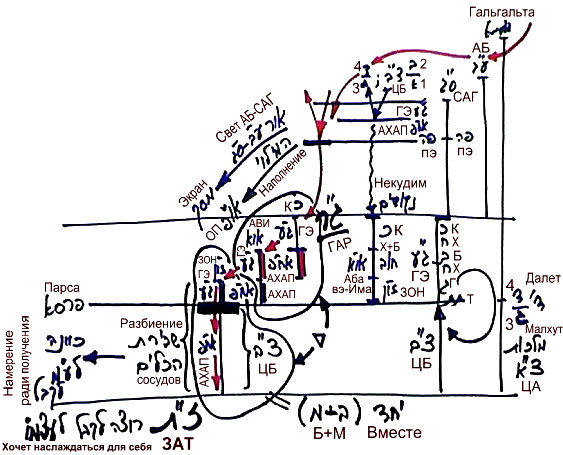 Гальгальта
АБ
ע"ב
4 2
3 1
ЦБ
צ"ב
САГ
ס"ג
ГЭ
АХАП
ПЭ
פה
ПЭ
פה
Свет АБ-САГ
Наполнение
Экран
ОП
Некудим
נקודים
К
כ
АВИ
ГЭ
ГАР
ג"ר
АХАП
ЗОН
ГЭ
АХАП
К
Х+Б
Аба
вэ-Има
ЗОН
ГЭ
К
Х
Б
Х
Г
Т
Парса
פרסא
4
3
Далет
Малхут
מלכות
צ"א
ЦА
Намерение
ради получения
Разбиение
שבירת
הכלים
сосудов
כוונה
АХАП
צ"ב
ЦБ
צ"ב
ЦБ
רוצה
Хочет наслаждаться для себя
ЗАТ
ז"ת
(ב+מ)
יחד
Б+М
Вместе